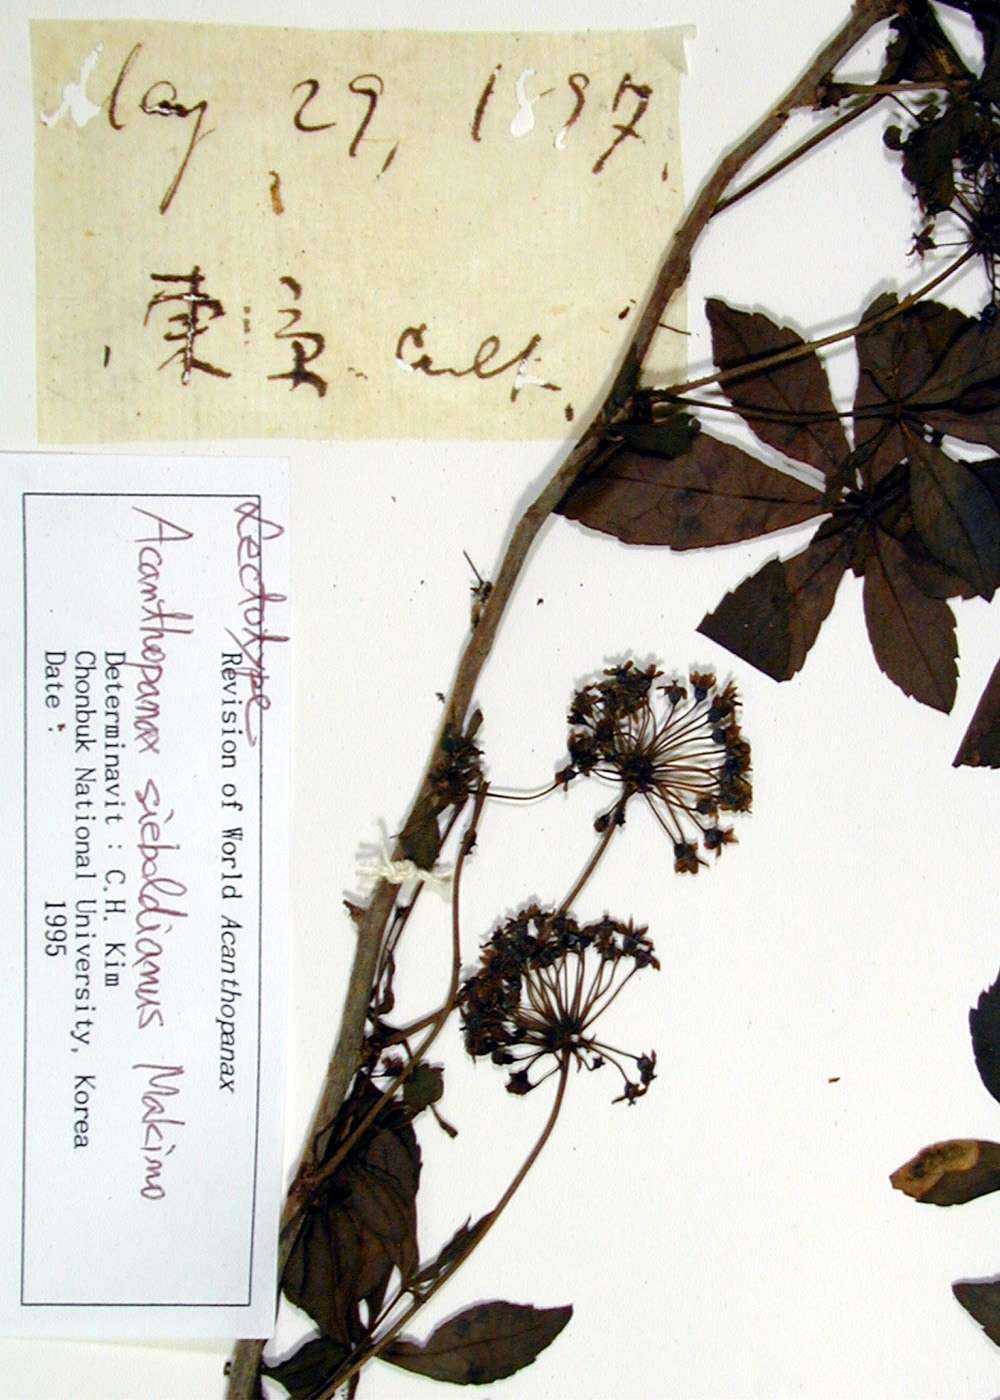 May 29, 1897.
東京. Cult.
Lectotype
Revision of World Acanthopanax
Acanthopanax sieboldianus Makino
Determinavit : C.H. Kim
Chonbuk National University, Korea
Date : 1995